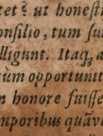 tet? ut honesti
onſilio, tum ſu
lligunt. Itaq;
ium opportun
n honore fuiſſe
mporibus quàm